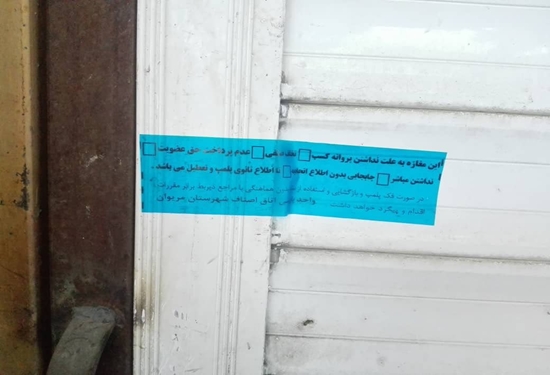 این مغازه به علت نداشتن پروانه کسب □ تخلف صنفی □ عدم پرداخت حق عضویت □
نداشتن مباشر □ جابجایی بدون اطلاع اتحادیه □ تا اطلاع ثانوی پلمب و تعطیل می باشد.
در صورت فک پلمپ و بازگشایی و استفاده از هماهنگی با مراجع ذیربط برابر مقررات
اقدام و پیگرد خواهد داشت. واحد اتاق اصناف شهرستان مریوان